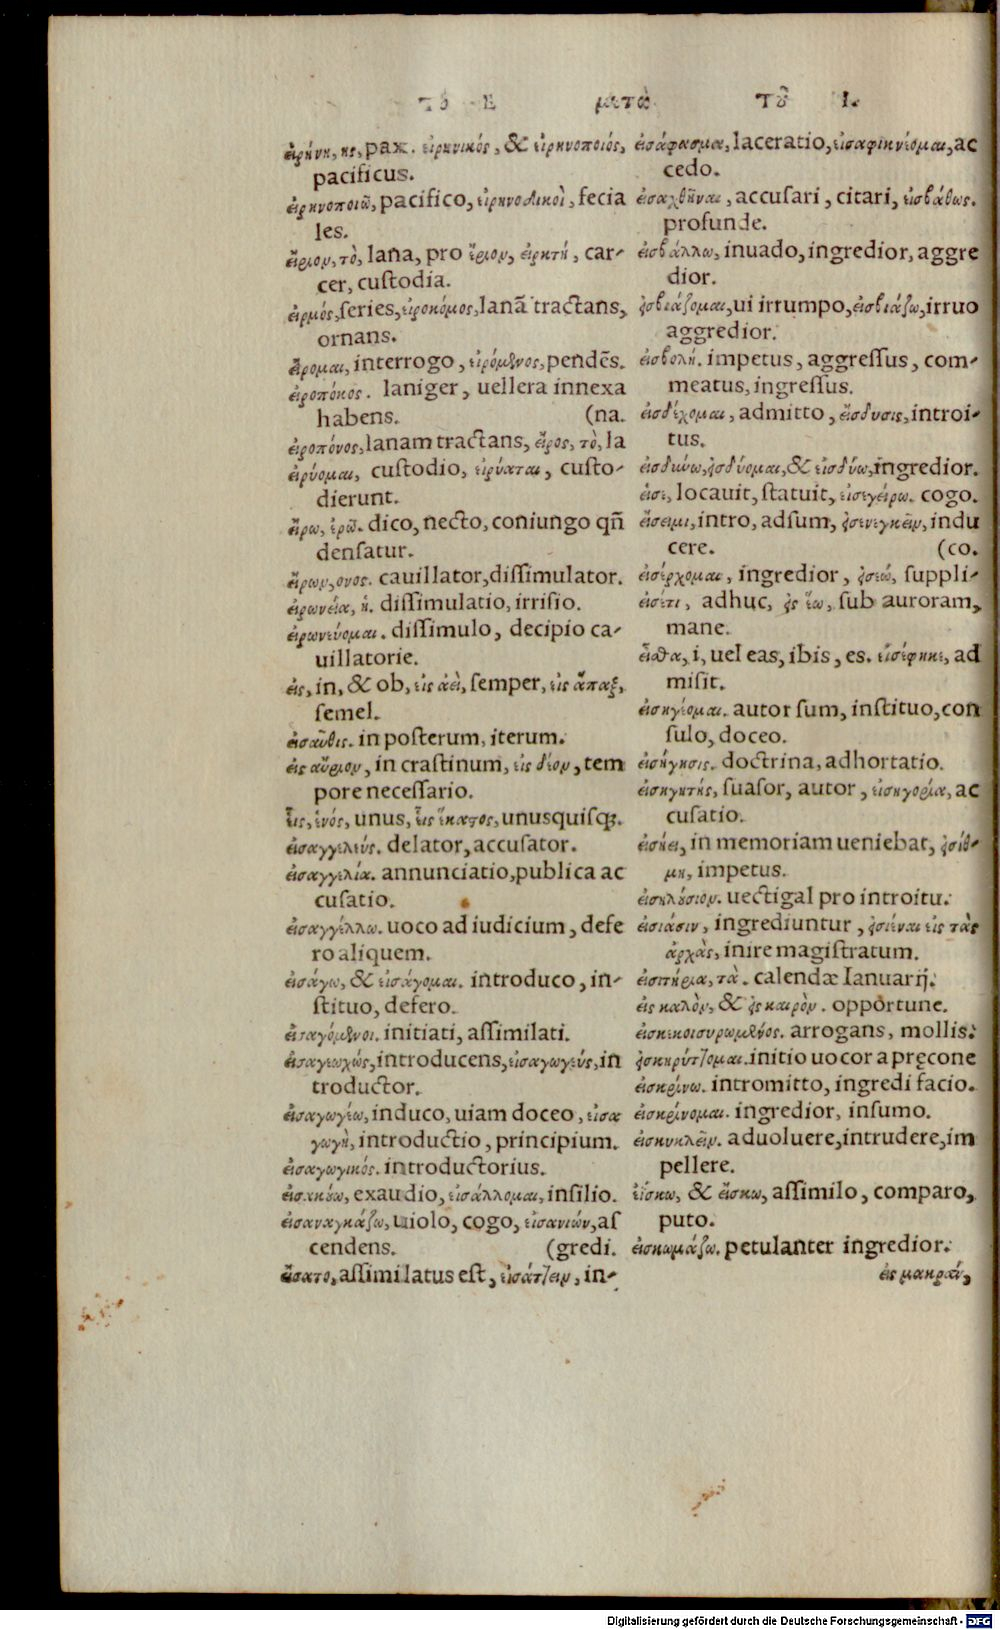 τὸ Ε μετὰ τοῦ Ι.
εἰρήνη, ης, pax. εἰρηνικός, & εἰρηνοποιός,
pacificus.
εἰρηνοποιῶ, pacifico, εἰρηνοδικοὶ, fecia
les.
εἴριον, τὸ, lana, pro ἔριον, εἱρκτή, car-
cer, custodia.
εἱρμός, series, εἰροκόμος, lanā tractans,
ornans.
εἴρομαι, interrogo, εἰρόμενος, pendēs.
εἰροπόκος. laniger, uellera innexa
habens. (na.
εἰροπόνος, lanam tractans, εἶρος, τὸ, la
εἰρύομαι, custodio, εἰρύαται, custo-
dierunt.
εἴρω, ἐρῶ. dico, necto, coniungo qñ
densatur.
εἴρων, ονος. cauillator, dissimulator.
εἰρωνεία, ἡ. dissimulatio, irrisio.
εἰρωνεύομαι. dissimulo, decipio ca-
uillatorie.
εἰς, in, & ob, εἰς ἀεὶ, semper, εἰς ἅπαξ,
semel.
εἰσαῦθις. in posterum, iterum.
εἰς αὔριον, in crastinum, εἰς δέον, tem
pore necessario.
εἷς, ἑνός, unus, εἷς ἕκαστος, unusquisq;.
εἰσαγγελεύς. delator, accusator.
εἰσαγγελία. annunciatio, publica ac
cusatio.
εἰσαγγέλλω. uoco ad iudicium, defe
ro aliquem.
εἰσάγω, & εἰσάγομαι. introduco, in-
stituo, defero.
εἰσαγόμενοι. initiati, assimilati.
εἰσαγειωχώς, introducens, εἰσαγωγεύς, in
troductor.
εἰσαγωγέω, induco, uiam doceo, εἰσα
γωγὴ, introductio, principium.
εἰσαγωγικός. introductorius.
εἰσακούω, exaudio, εἰσάλλομαι, insilio.
εἰσαναγκάζω, uiolo, cogo, εἰσανιών, as
cendens. (gredi.
εἴσατο, assimilatus est, εἰσάττειν, in-
εἰσάφασμα, laceratio, εἰσαφικνέομαι, ac
cedo.
εἰσαχθῆναι, accusari, citari, εἰσβάθως.
profunde.
εἰσβάλλω, inuado, ingredior, aggre
dior.
ἐσβιάζομαι, ui irrumpo, εἰσβιάζω, irruo
aggredior.
εἰσβολή. impetus, aggressus, com-
meatus, ingressus.
εἰσδέχομαι, admitto, εἴσδυσις, introi-
tus.
εἰσδύνω, ἐσδύομαι, & εἰσδύω, ingredior.
εἷσε, locauit, statuit, εἰσεγείρω. cogo.
εἴσειμι, intro, adsum, ἐσενεγκεῖν, indu
cere. (co.
εἰσέρχομαι, ingredior, ἐσιώ, suppli-
εἰσέτι, adhuc, ἐς ἕω, sub auroram,
mane.
εἶσθα, i, uel eas, ibis, es. εἰσέφηκε, ad
misit.
εἰσηγέομαι. autor sum, instituo, con
sulo, doceo.
εἰσήγησις. doctrina, adhortatio.
εἰσηγητής, suasor, autor, εἰσηγορία, ac
cusatio.
εἰσῄει, in memoriam ueniebat, ἐσίθ-
μη, impetus.
εἰσηλύσιον. uectigal pro introitu.
εἰσιάσιν, ingrediuntur, ἐσιέναι εἰς τὰς
ἀρχὰς, inire magistratum.
εἰσιτήρια, τὰ. calendæ Ianuarij.
εἰς καλὸν, & ἐς καιρὸν. opportune.
εἰσκεκοισυρωμένος. arrogans, mollis.
ἐσκηρύττομαι. initio uocor a pręcone
εἰσκρίνω. intromitto, ingredi facio.
εἰσκρίνομαι. ingredior, insumo.
εἰσκυκλεῖν. aduoluere, intrudere, im
pellere.
ἐΐσκω, & εἴσκω, assimilo, comparo,
puto.
εἰσκωμάζω. petulanter ingredior.
εἰς μακρὰν,
Digitalisierung gefördert durch die Deutsche Forschungsgemeinschaft - DFG